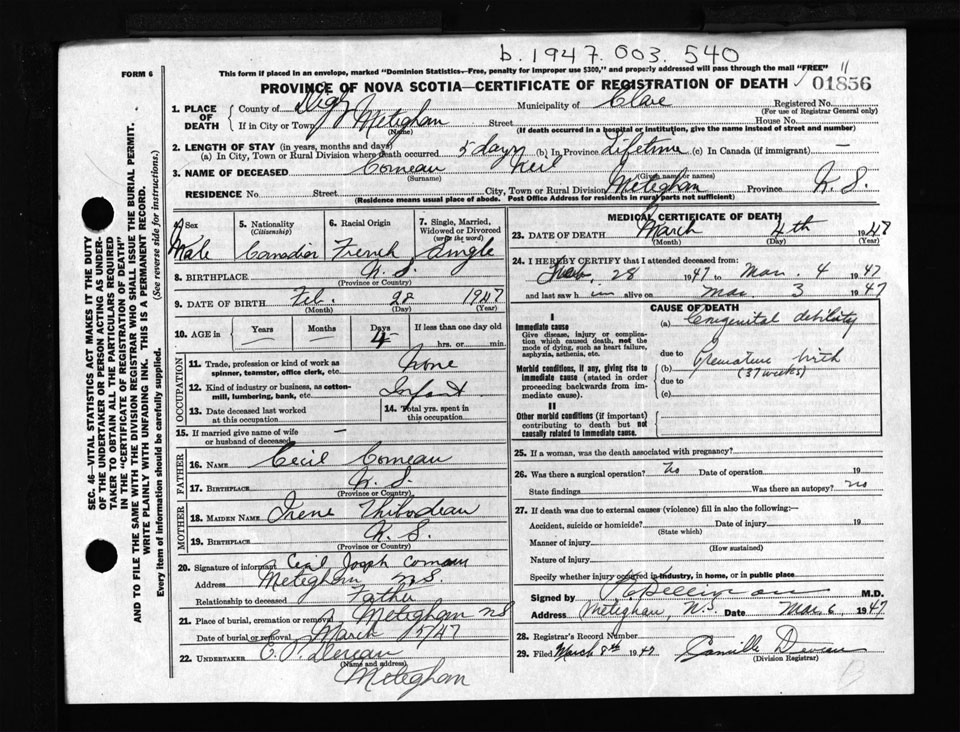 b. 1947. 003. 540
FORM 6
This form if placed in an envelope, marked "Dominion Statistics-Free, penalty for improper use $300," and properly addressed will pass through the mail "FREE" 11
PROVINCE OF NOVA SCOTIA—CERTIFICATE OF REGISTRATION OF DEATH 01856
1. PLACE OF DEATH County of Digby Municipality of Clare Registered No.
(For use of Registrar General only)
If in City or Town Meteghan Street House No.
(Name) (If death occurred in a hospital or institution, give the name instead of street and number)
2. LENGTH OF STAY (in years, months and days)
(a) In City, Town or Rural Division where death occurred 5 days (b) In Province Lifetime (c) In Canada (if immigrant) —
3. NAME OF DECEASED Comeau
(Surname) (Given name or names)
RESIDENCE No Street City, Town or Rural Division Meteghan Province N.S.
(Residence means usual place of abode. Post Office Address for residents in rural parts not sufficient)
4. Sex 5. Nationality 6. Racial Origin 7. Single, Married,
(Citizenship) Widowed or Divorced
(write the word)
Male Canadian French Single
8. BIRTHPLACE N.S.
(Province or Country)
9. DATE OF BIRTH Feb. 28 1947
(Month) (Day) (Year)
10. AGE in Years Months Days If less than one day old
4 hrs. or min.
OCCUPATION
11. Trade, profession or kind of work as None
spinner, teamster, office clerk, etc.
12. Kind of industry or business, as cotton- Infant
mill, lumbering, bank, etc.
13. Date deceased last worked 14. Total yrs. spent in
at this occupation this occupation
15. If married give name of wife
or husband of deceased —
FATHER
16. NAME Cecil Comeau
17. BIRTHPLACE N.S.
(Province or Country)
MOTHER
18. MAIDEN NAME Irene Thibodeau
19. BIRTHPLACE N.S.
(Province or Country)
20. Signature of informant Cecil Joseph Comeau
Address Meteghan N.S.
Relationship to deceased Father
21. Place of burial, cremation or removal Meteghan NS
Date of burial or removal March 5/47
22. UNDERTAKER
(Name and address)
Meteghan
MEDICAL CERTIFICATE OF DEATH
23. DATE OF DEATH March 4th 1947
(Month) (Day) (Year)
24. I HEREBY CERTIFY that I attended deceased from:
Feb. 28 1947 to Mar. 4 1947
and last saw him alive on Mar. 3 1947
CAUSE OF DEATH
I
Immediate cause (a) Congenital debility
Give disease, injury or complication which caused death, not the mode of dying, such as heart failure, asphyxia, asthenia, etc.
due to
Morbid conditions, if any, giving rise to immediate cause (stated in order proceeding backwards from immediate cause).
(b) Premature birth
(37 weeks)
due to
(c)
II
Other morbid conditions (if important) contributing to death but not causally related to immediate cause.
25. If a woman, was the death associated with pregnancy?
26. Was there a surgical operation? No Date of operation 19
State findings Was there an autopsy? no
27. If death was due to external causes (violence) fill in also the following:
Accident, suicide or homicide? Date of injury 19
(State which)
Manner of injury
(How sustained)
Nature of injury
Specify whether injury occurred in industry, in home, or in public place
Signed by M.D.
Address Meteghan, N.S. Date Mar 6 1947
28. Registrar's Record Number
29. Filed March 8th 1947
(Division Registrar)
SEC. 46—VITAL STATISTICS ACT MAKES IT THE DUTY
OF THE UNDERTAKER OR PERSON ACTING AS UNDER-
TAKER TO OBTAIN ALL THE PARTICULARS REQUIRED
IN THE "CERTIFICATE OF REGISTRATION OF DEATH"
AND TO FILE THE SAME WITH THE DIVISION REGISTRAR WHO SHALL ISSUE THE BURIAL PERMIT.
WRITE PLAINLY WITH UNFADING INK. THIS IS A PERMANENT RECORD.
Every item of information should be carefully supplied. (See reverse side for instructions.)